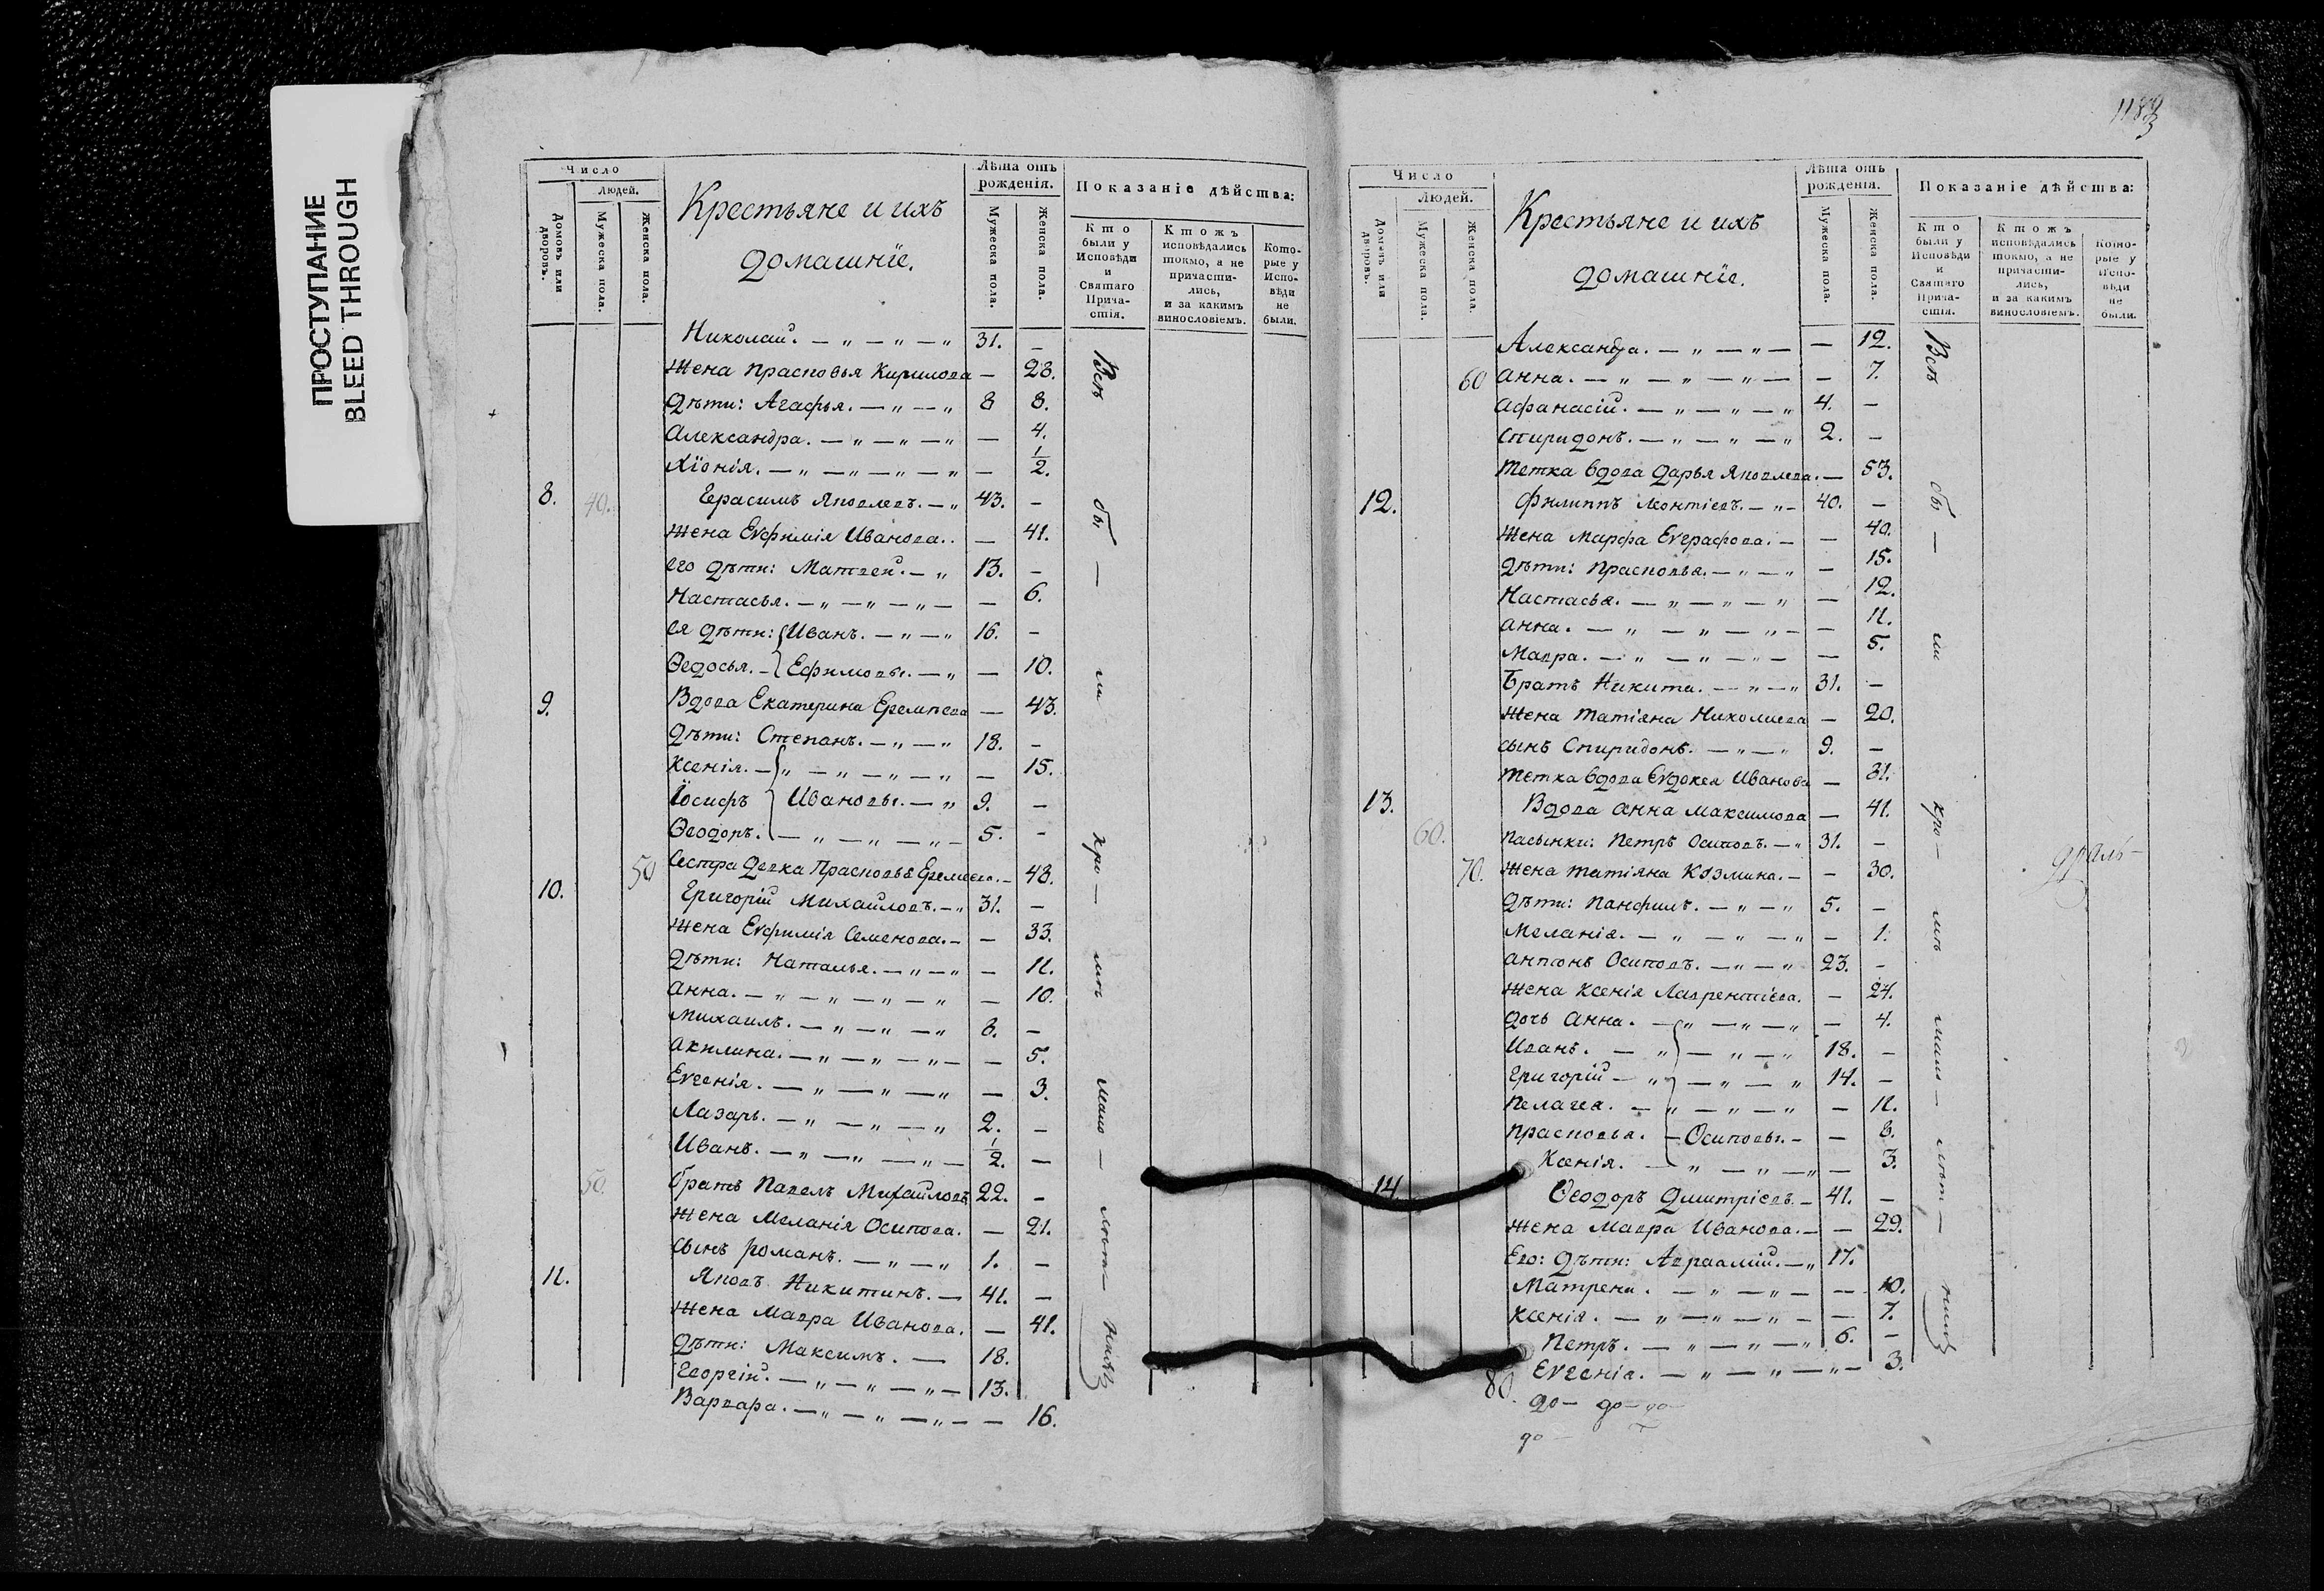 ПРОСТУПАНИЕ
BLEED THROUGH
Число
Людей.
Домовъ или дворовъ.
Мужеска пола.
Женска пола.
Крестьяне и ихъ
домашніе.
Лѣта отъ рожденія.
Мужеска пола.
Женска пола.
Показаніе дѣйства:
Кто были у Исповѣди и Святаго Прича-стія.
Ктожъ исповѣдались токмо, а не причасти-лись, и за какимъ винословіемъ.
Кото-рые у Испо-вѣди не были.
Николай. — „ — „ — „ 31. —
Жена Прасковья Кирилова — 28.
Дѣти: Агафья. — „ — „ 8 8.
Александра. — „ — „ — „ — 4.
Хіонія. — „ — „ — „ — „ — 1/2.
8. 40. Герасимъ Яковлевъ. — „ 43. —
Жена Евфимія Иванова.. — 41.
его дѣти: Матвей. — „ 13. —
Настасья. — „ — „ — „ — — 6.
ея дѣти: Иванъ. — „ — „ 16. —
Ѳедосья. — Ефимовы. — „ — 10.
9. Вдова Екатерина Еремѣева — 43.
Дѣти: Степанъ. — „ — „ 18. —
Ксенія. — „ — „ — „ — „ — 15.
Іосифъ Ивановы. — „ 9. —
Ѳеодоръ. — „ — „ — „ — 5. —
50 Сестра девка Прасковья Еремеева. — 48.
10. Григорій Михайловъ. — „ 31. —
Жена Евфимія Семенова. — — 33.
Дѣти: Наталья. — „ — „ — 11.
Анна. — „ — „ — „ — „ — 10.
Михаилъ. — „ — „ — „ 8. —
Акилина. — „ — „ — „ — — 5.
Евгенія. — „ — „ — „ — 3.
Лазарь. — „ — „ — „ 2. —
Иванъ. — „ — „ — „ — 1/2. —
50. братъ Павелъ Михайловъ 22. —
Жена Меланія Осипова. — 21.
сынъ Романъ. — „ — „ 1. —
11. Яковъ Никитинъ. — 41. —
Жена Мавра Иванова. — 41.
Дѣти: Максимъ. — 18.
Георгій. — „ — „ — „ — 13.
Варвара. — „ — „ — „ — — 16.
Всѣ бы — ли кро — мѣ мало — лѣт — нихъ
1183
Число
Людей.
Домовъ или дворовъ.
Мужеска пола.
Женска пола.
Крестьяне и ихъ
домашніе.
Лѣта отъ рожденія.
Мужеска пола.
Женска пола.
Показаніе дѣйства:
Кто были у Исповѣди и Святаго Прича-стія.
Ктожъ исповѣдались токмо, а не причасти-лись, и за какимъ винословіемъ.
Кото-рые у Испо-вѣди не были.
Александра. — „ — „ — — 12.
60 Анна. — „ — „ — „ — — 7.
Афанасій. — „ — „ — „ 4. —
Спиридонъ. — „ — „ — „ 2. —
Тетка вдова Дарья Яковлева. — 53.
12. Филиппъ Леонтіевъ. — „ — 40. —
Жена Марфа Евграфова. — — 40.
Дѣти: Прасковья. — „ — „ — 15.
Настасья. — „ — „ — „ — 12.
Анна. — „ — „ — „ — — 11.
Мавра. — „ — „ — „ — — 5.
Братъ Никита. — „ — „ 31. —
Жена Татіяна Николаева — 20.
сынъ Спиридонъ. — „ — „ 9. —
Тетка вдова Евдокея Иванова — 31.
13. Вдова Анна Максимова — 41.
60. Пасынки: Петръ Осиповъ. — „ 31. —
70. Жена Татіяна Козмина. — — 30.
Дѣти: Панфилъ. — „ — „ 5. —
Меланія. — „ — „ — „ — 1.
Антонъ Осиповъ. — „ — „ 23. —
Жена Ксенія Лаврентіева. — 24.
дочь Анна. — „ — „ — „ — 4.
Иванъ. — „ — „ — „ 18. —
Григорій — „ — „ — „ 14. —
Пелагея. — „ — „ — „ — 11.
Прасковья. — Осиповы. — — 8.
Ксенія. — „ — „ — „ — 3.
14 Ѳеодоръ Дмитріевъ. — 41. —
Жена Мавра Иванова. — — 29.
Его: дѣти: Авраамій. — „ 17.
Матрена. — „ — „ — — 10.
Ксенія. — „ — „ — „ — — 7.
Петръ. — „ — „ — „ 6. —
80. Евгенія. — „ — „ — „ — 3.
до — до — до —
до —
Всѣ бы — ли кро — мѣ мало — лѣт — нихъ